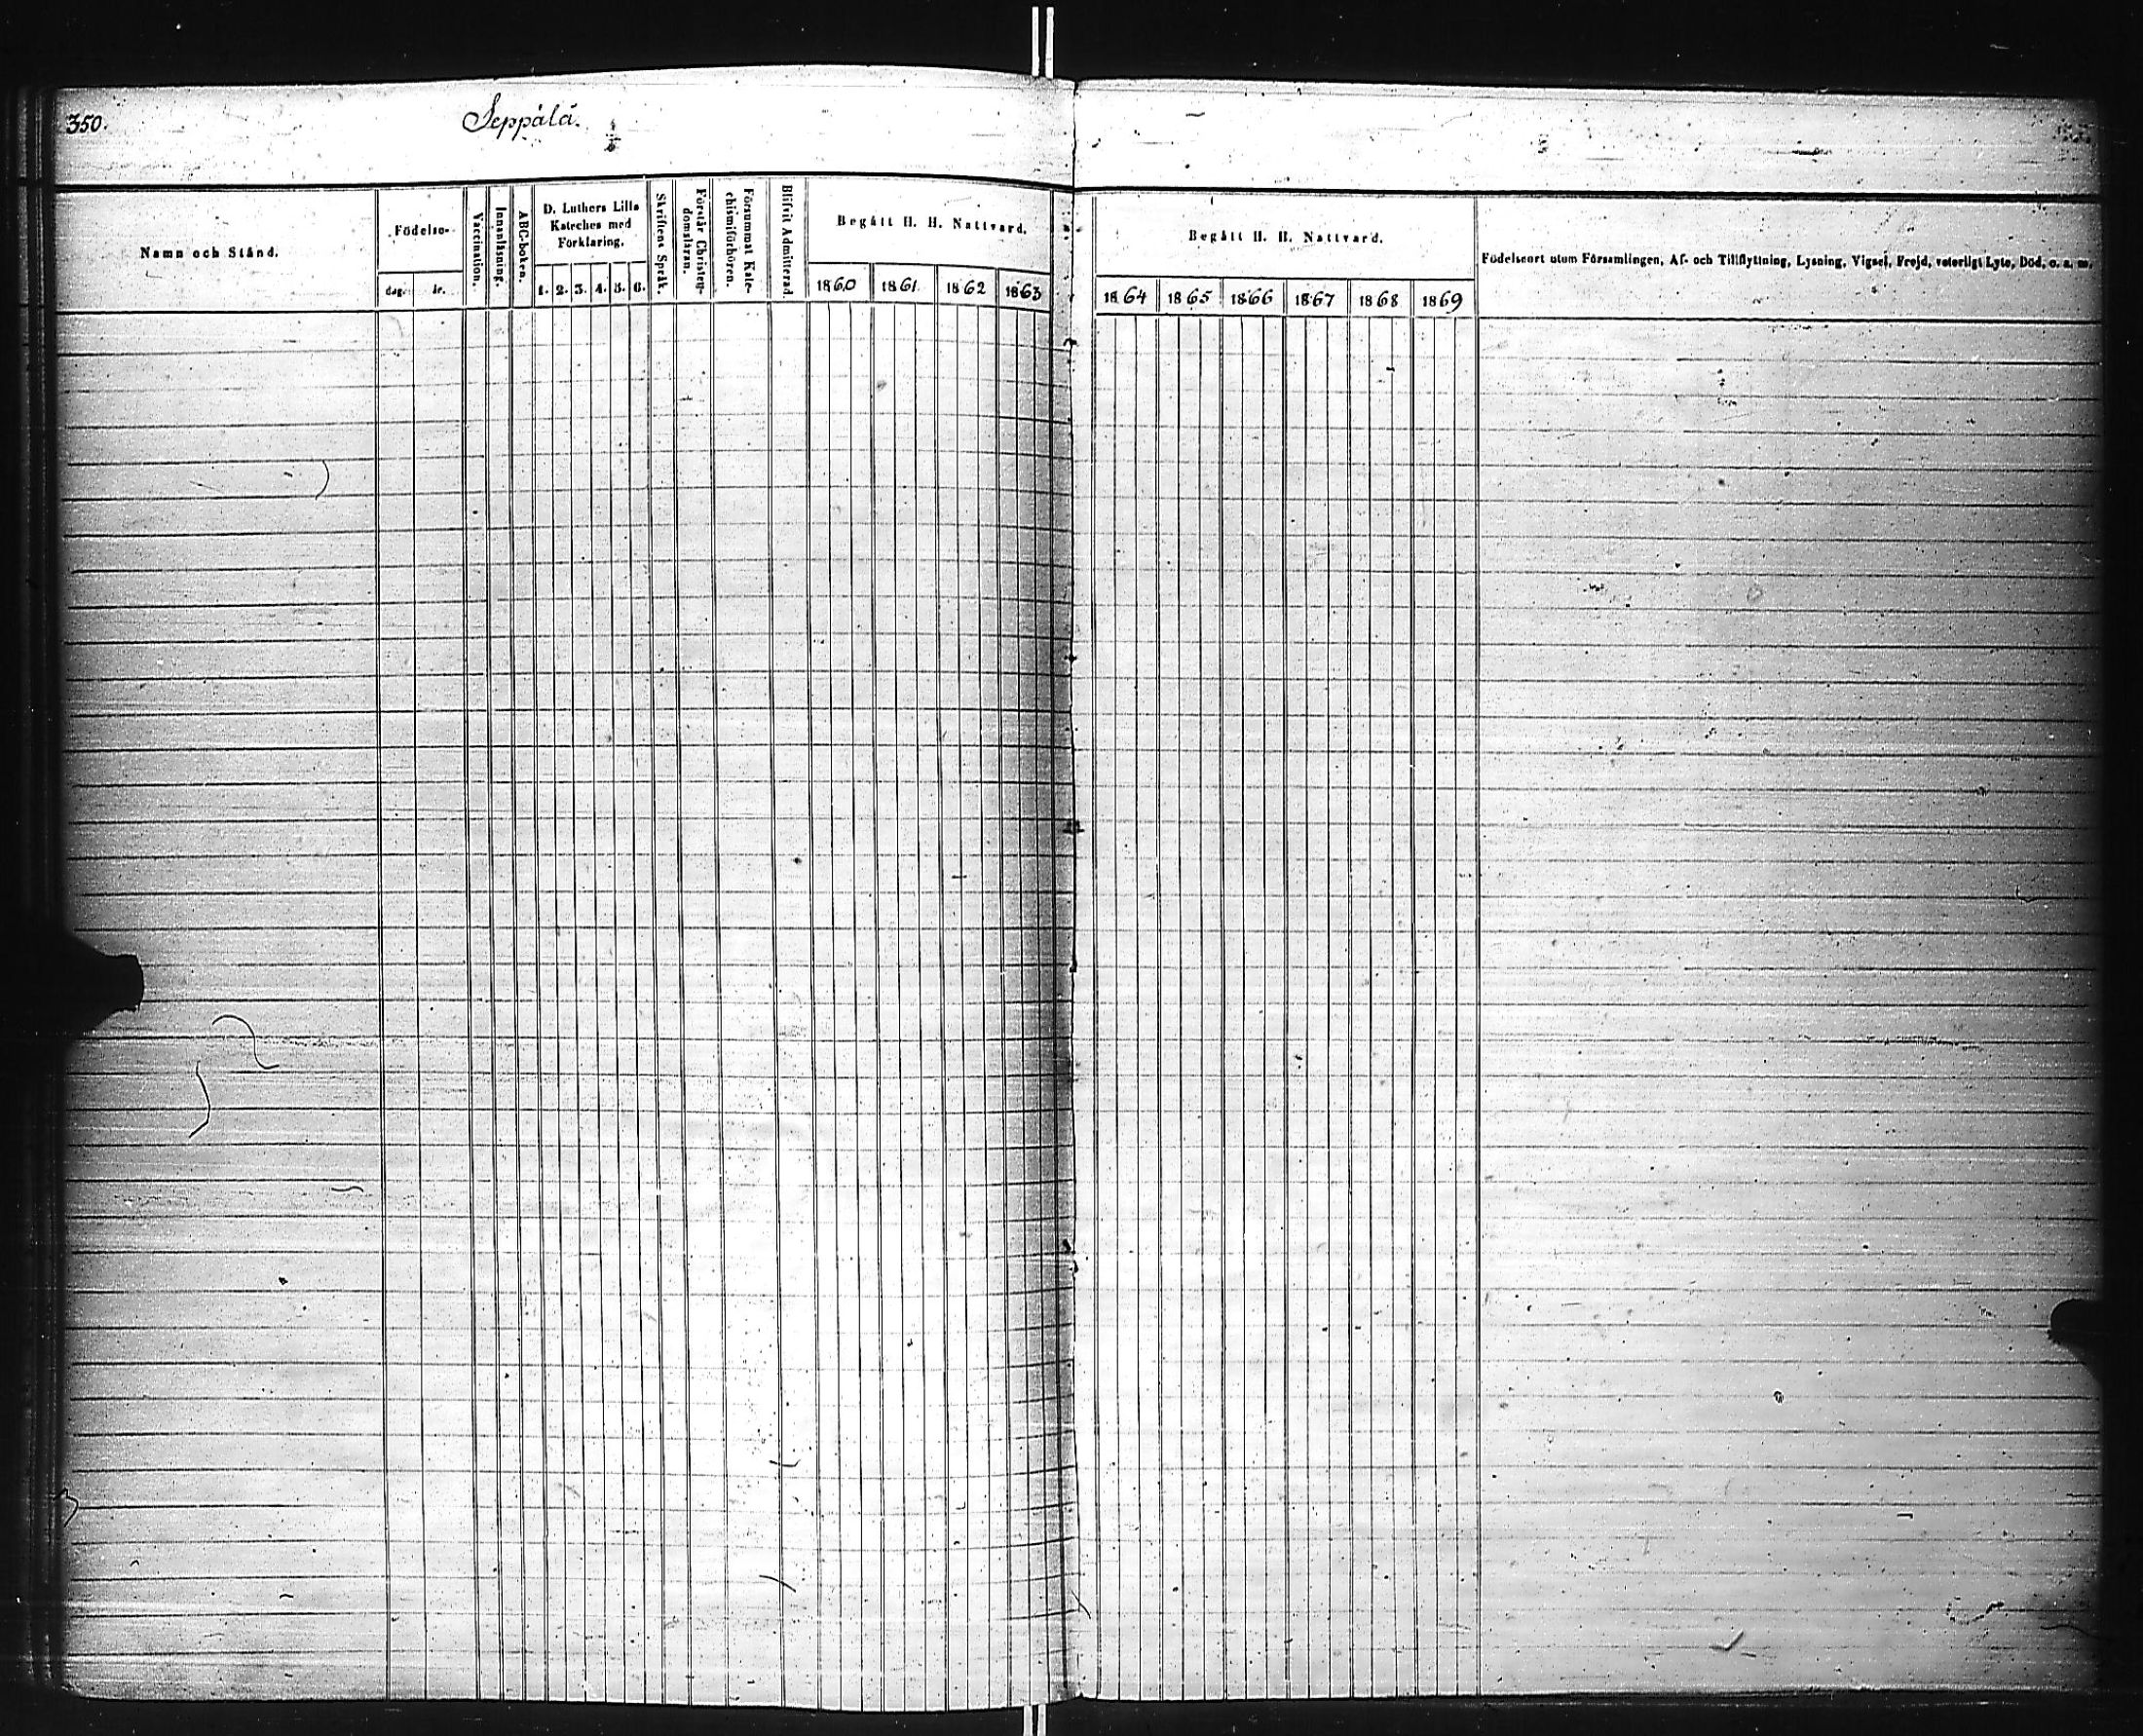 350.
Seppälä.
Namn och Stånd.
Födelse-
dag.
år.
Vaccination.
Innanläsning.
ABC-boken.
D. Luthers Lilla
Kateches med
Förklaring.
1. 2. 3. 4. 5. 6.
Skriftens Språk.
Förstår Christen-
domsläran.
Försummat Kate-
chismiförhören.
Blifvit Admitterad.
Begått H. H. Nattvard.
1860 1861 1862 1863
Begått H. H. Nattvard.
1864 1865 1866 1867 1868 1869
Födelseort utom Församlingen, Af- och Tillflyttning, Lysning, Vigsel, Frejd, veterligt Lyte, Död, o. s. m.